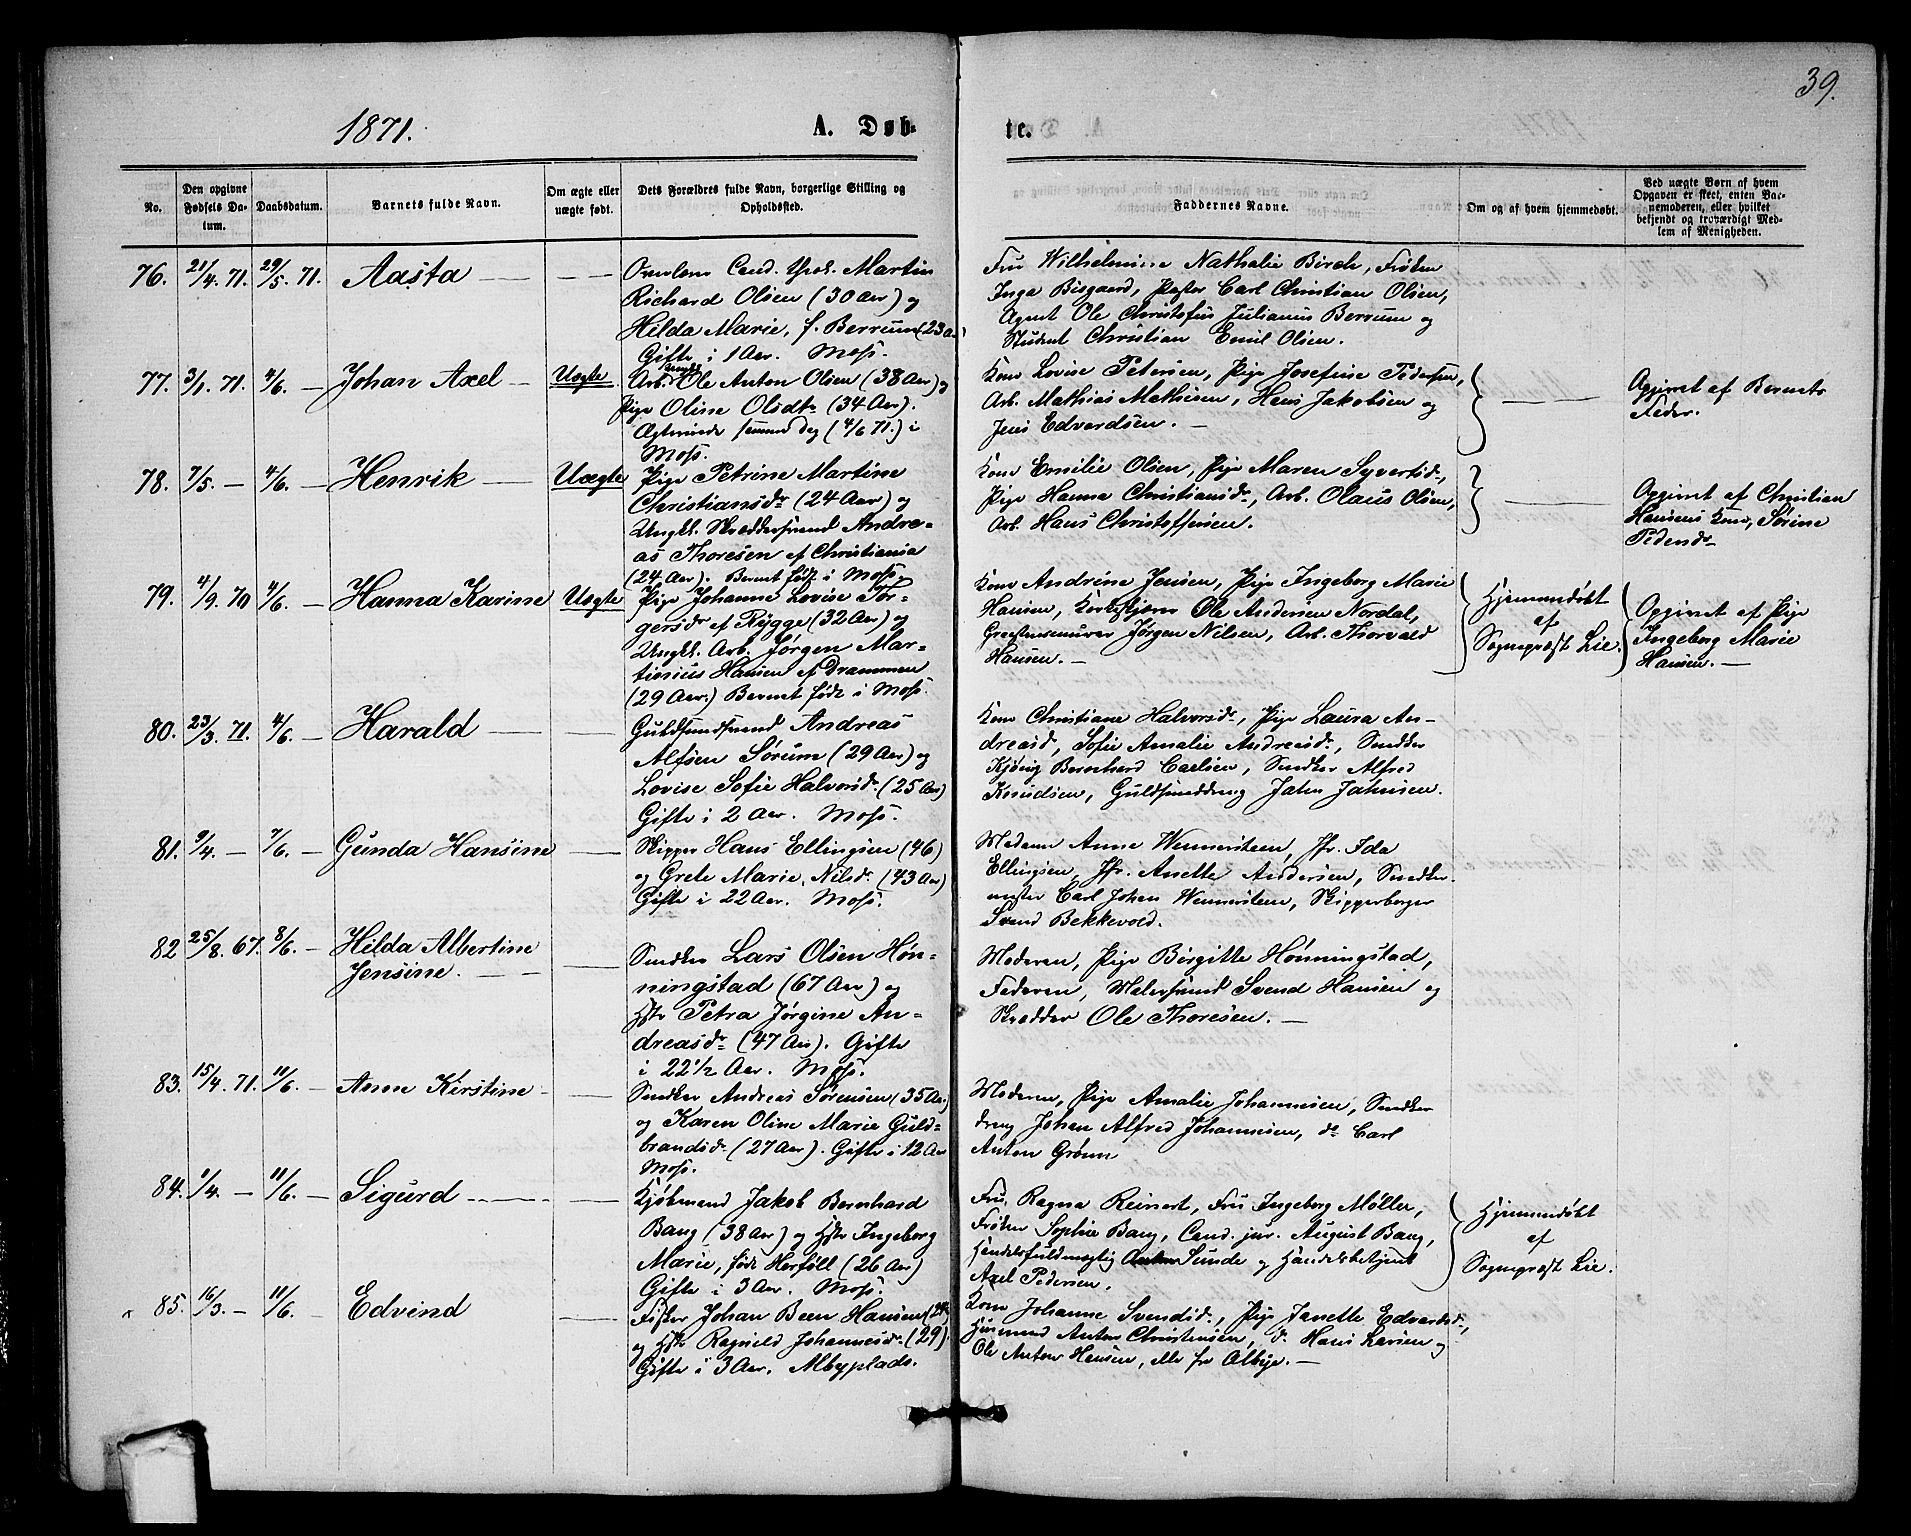 39.
1871.
A. Døb-
te.
No.
Den opgivne Fødsels Datum.
Daabsdatum.
Barnets fulde Navn.
Om ægte eller uægte født.
Dets Forældres fulde Navn, borgerlige Stilling og Opholdssted.
Faddernes Navne.
Om og af hvem hjemmedøbt.
Ved uægte Børn af hvem Opgaven er skeet, enten Barnemoderen, eller hvilket bekjendt og troværdigt Medlem af Menigheden.
76. 21/4. 71. 29/5. 71. Aasta
Cand. Martin
Richard Olsen (30 Aar) og
Hilda Marie, f. Berrum (23 Aar)
Gifte i 1 Aar. Moss.
Fru Wilhelmine Nathalie Birch, Frøken
Inga Bisgaard, Pastor Carl Christian Olsen,
Agent Ole Christofus Julianus Berrum og
Student Christian Emil Olsen.
77. 3/1. 71. 4/6. — Johan Axel — Uægte
Arb. Ole Anton Olsen (38 Aar) og
Pige Oline Olsdt. (34 Aar).
Ægteviede samme Dag (4/6 71.) i
Moss.
Kone Lovise Petersen, Pige Josefine Pedersen,
Arb. Mathias Mathisen, Hans Jakobsen og
Jens Edvardsen. —
Opgivet af Barnets
Fader.
78. 7/5. — 4/6. — Henrik — Uægte
Pige Petrine Martine
Christiansdr. (24 Aar) og
Ungk. Skræddersvend Andre-
as Thoresen af Christiania
(24 Aar). Barnet født i Moss.
Kone Emilie Olsen, Pige Maren Syvertsd.,
Pige Hanna Christiansdr., Arb. Olaus Olsen,
Arb. Hans Christoffersen.
Opgivet af Christian
Hansens Kone, Sørine
Pedersdr.
79. 4/9. 70 4/6. — Hanna Karine Uægte
Pige Johanne Lovise Tor-
gersdr. af Rygge (32 Aar) og
Ungk. Arb. Jørgen Mar-
tinius Hansen af Drammen
(29 Aar.) Barnet født i Moss.
Kone Andrine Jensen, Pige Ingeborg Marie
Hansen, Ole Andersen Nordal,
Jørgen Nilsen, Arb. Thorvald
Hansen. —
Hjemmedøbt
af
Sogneprest Lie.
Opgivet af Pige
Ingeborg Marie
Hansen. —
80. 23/3. 71. 4/6. — Harald
Guldsmedsvend Andreas
Alfsen Sørum (29 Aar) og
Lovise Sofie Halvorsdr. (25 Aar)
Gifte i 2 Aar. Moss.
Kone Christiane Halvorsdr., Pige Laura An-
dreasd., Sofie Amalie Andreasdr., Snedker
Bernhard Carlsen, Snedker Alfred
Knudsen, Guldsmeddreng John Johnsen.
81. 9/4. — 7/6. — Gunda Hansine
Skipper Hans Ellingsen (46)
og Grete Marie, Nilsdr. (43 Aar)
Gifte i 22 Aar. Moss.
Madame Anne Wennersteen, Jfr. Ida
Ellingsen, Jfr. Anette Andersen, Snedker-
mester Carl Johan Wennersteen, Skipperborger
Svend Bekkevold.
82 25/8. 67. 8/6. — Hilda Albertine
Jensine.
Snedker Lars Olsen Høn-
ningstad (67 Aar) og
Hstr. Petra Jørgine An-
dreasdr. (47 Aar). Gifte
i 22 1/2 Aar. Moss.
Moderen, Pige Birgitte Hønningstad,
Faderen, Malersvend Svend Hansen og
Skrædder Ole Thoresen. —
83. 15/4. 71. 11/6. — Anne Kirstine
Snedker Andreas Sørensen (35 Aar)
og Karen Oline Marie Guld-
brandsdr. (27 Aar). Gifte i 12 Aar
Moss.
Moderen, Pige Amalie Johannesen, Snedker
dreng Johan Alfred Johannesen, do. Carl
Anton Grønn
84. 1/4. — 11/6. — Sigurd
Kjøbmand Jakob Bernhard
Bang (38 Aar) og Hstr. Ingeborg
Marie, født Herføll (26 Aar)
Gifte i 3 Aar. Moss.
Fru Ragna Reinert, Fru Ingeborg Møller,
Frøken Sophie Bang, Cand. jur. August Bang,
Handelsfuldmægtig Anton Sunde og Handelsbetjent
Axel Pedersen.
Hjemmedøbt
af
Sogneprest Lie.
85. 16/3. — 11/6. — Edvind
Fisker Johan Been Hansen
og Hstr. Ragnild Johannesdr. (29).
Gifte i 3 Aar. Albyplads.
Kone Johanne Svendsd., Pige Janette Edvardsd.,
Husmand Anton Christensen, do. Hans Larsen og
Ole Anton Hansen, alle fr. Albye. —